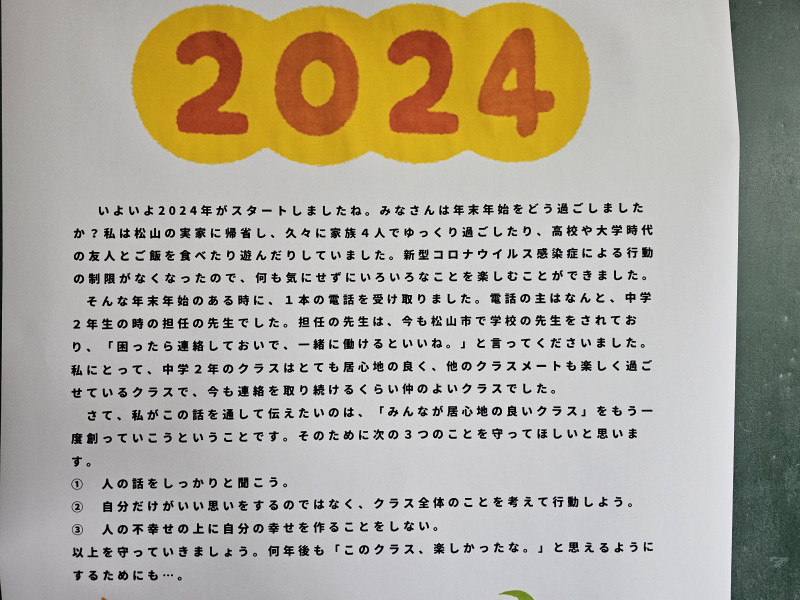 2024
いよいよ2024年がスタートしましたね。みなさんは年末年始をどう過ごしました
か？私は松山の実家に帰省し、久々に家族４人でゆっくり過ごしたり、高校や大学時代
の友人とご飯を食べたり遊んだりしていました。新型コロナウイルス感染症による行動
の制限がなくなったので、何も気にせずにいろいろなことを楽しむことができました。
そんな年末年始のある時に、１本の電話を受け取りました。電話の主はなんと、中学
２年生の時の担任の先生でした。担任の先生は、今も松山市で学校の先生をされてお
り、「困ったら連絡しておいで、一緒に働けるといいね。」と言ってくださいました。
私にとって、中学２年のクラスはとても居心地の良く、他のクラスメートも楽しく過ご
せているクラスで、今も連絡を取り続けるくらい仲のよいクラスでした。
さて、私がこの話を通して伝えたいのは、「みんなが居心地の良いクラス」をもう一
度創っていこうということです。そのために次の３つのことを守ってほしいと思いま
す。
① 人の話をしっかりと聞こう。
② 自分だけがいい思いをするのではなく、クラス全体のことを考えて行動しよう。
③ 人の不幸せの上に自分の幸せを作ることをしない。
以上を守っていきましょう。何年後も「このクラス、楽しかったな。」と思えるように
するためにも…。